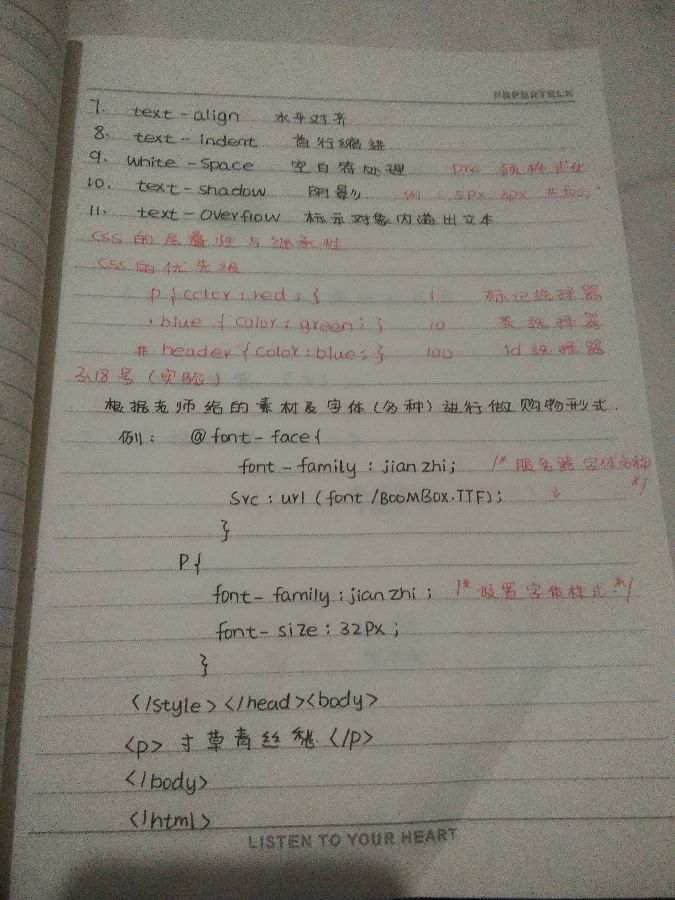 PAPERTALK
7. text-align 水平对齐
8. text-indent 首行缩进
9. white-space 空白符处理 pre 预格式化
10. text-shadow 阴影 例 5px 3px #f00;
11. text-overflow 标示对象内溢出文本
CSS的层叠性与继承性
CSS的优先级
p{color:red;} 1 标记选择器
.blue {color:green;} 10 类选择器
# header{color:blue;} 100 id选择器
3.18号(实验)
根据老师给的素材及字体(各种)进行做购物形式.
例: @font-face{
font-family:jianzhi; /*服务器字体名称
Src:url(font/BOOMBOX.TTF); */
}
P{
font-family:jianzhi; /*设置字体样式*/
font-size:32Px;
}
</style></head><body>
<p>寸草青丝愁</p>
</body>
</html>
LISTEN TO YOUR HEART